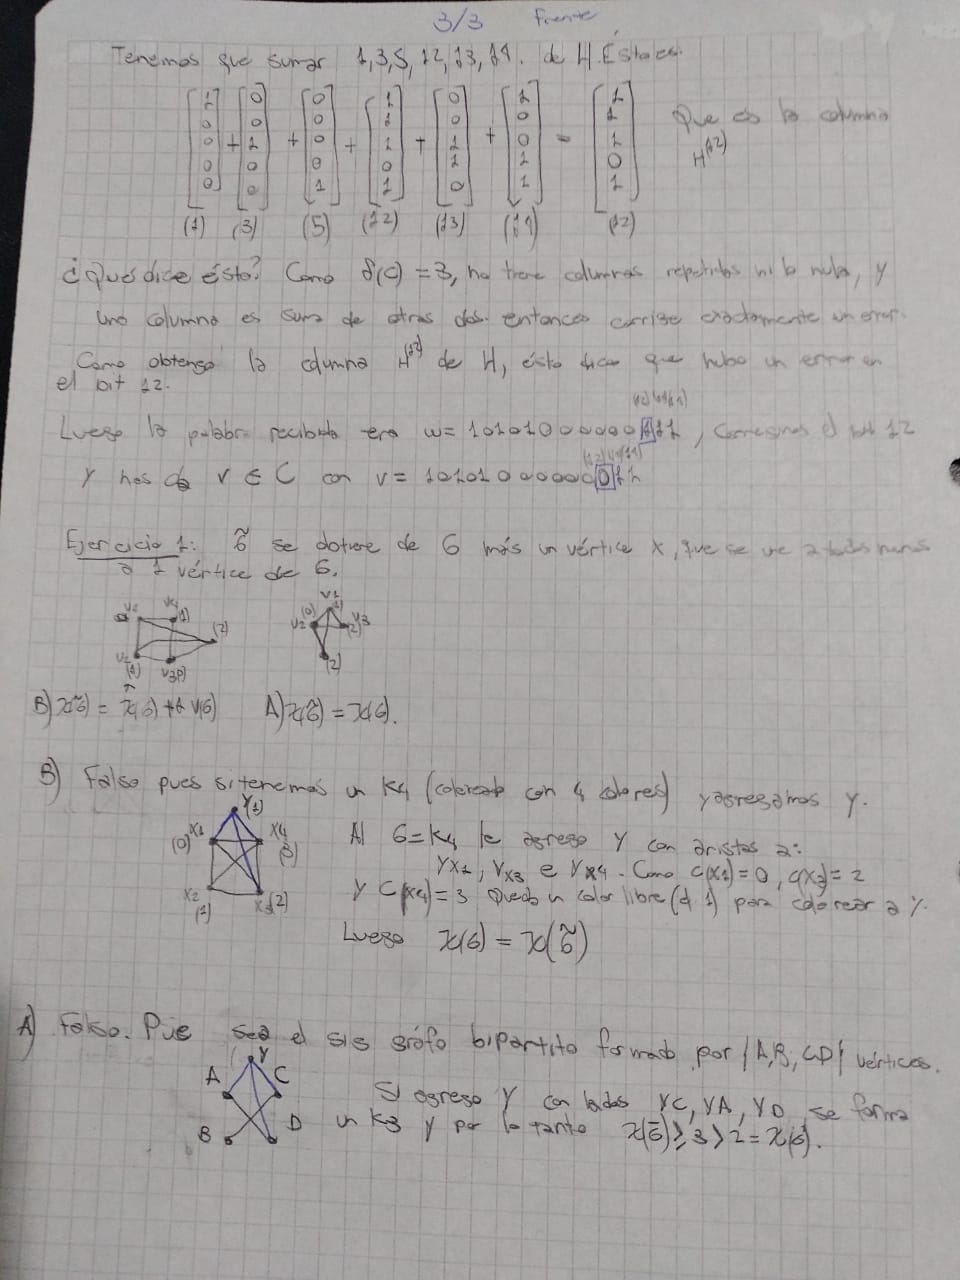 3/3 Frente
Tenemos que sumar 1,3,5,12,13,14. de H. Ésto es:
[1 0 0 0 0] + [0 0 1 0 0] + [0 0 0 0 1] + [1 1 1 0 1] + [0 0 1 1 0] + [1 0 0 1 1] = [1 1 1 0 1] Que es la columna H(12)
(1) (3) (5) (12) (13) (14) (12)
¿Qué dice ésto? Como δ(C) = 3, no tiene columnas repetidas ni la nula, y
una columna es suma de otras dos entonces corrige exactamente un error.
Como obtengo la columna H(12) de H, ésto dice que hubo un error en
el bit 12.
Luego la palabra recibida era w= 10101000000111, corregimos el bit 12
y nos da v ∈ C con v= 10101000000011
Ejercicio 1: G̃ se obtiene de G más un vértice x, que se une a todos menos
a 1 vértice de G.
V1 V4 (1) (2)
V2 (1) V3
V1 (1) V2 (0) V3 (2) (2)
B) χ(G̃) = χ(G) + 1 ∀ V(G) A) χ(G̃) = χ(G).
B) Falso pues si tenemos un K4 (coloreado con 4 colores) y agregamos Y.
Y(1) X1 (0) X4 (3) X2 (1) X3(2)
Al G=K4 le agrego Y con aristas a:
YX1, YX3 e YX4. Como C(X1)=0, C(X3)=2
y C(X4)=3 Queda un color libre (el 1) para colorear a Y.
Luego χ(G) = χ(G̃)
A) Falso. Pues sea el sig grafo bipartito formado por {A,B,C,D} vértices.
Y A C B D
Si agrego Y con lados YC, YA, YD, se forma
un K3 y por lo tanto χ(G̃) ≥ 3 > 2 = χ(G).